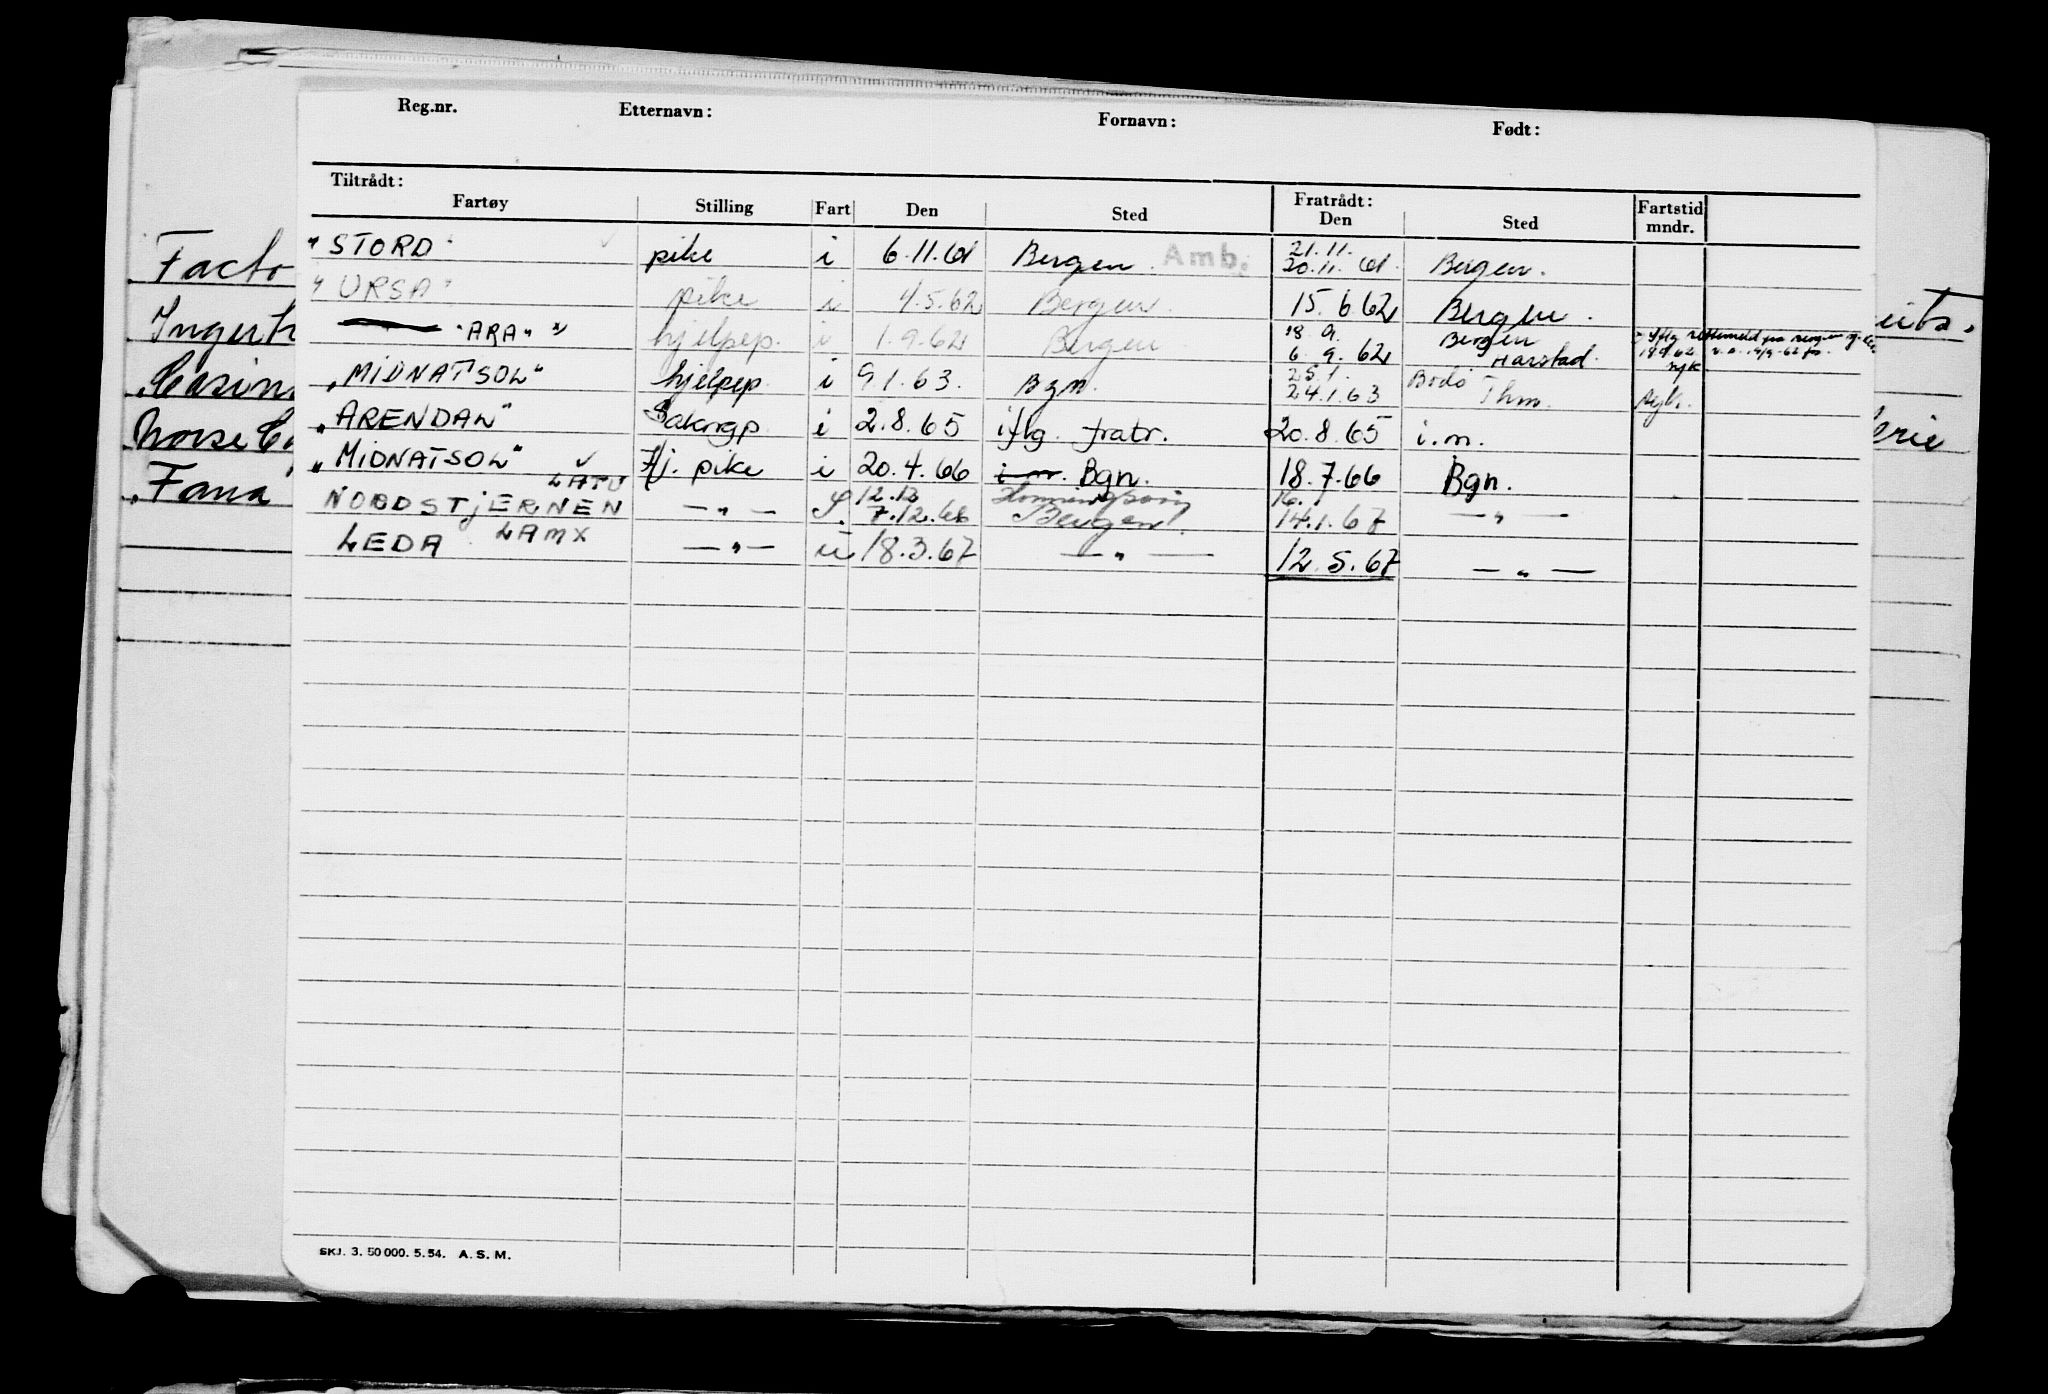 Reg.nr. Etternavn: Fornavn: Født:
Tiltrådt: Fratrådt:
Fartøy Stilling Fart Den Sted Den Sted Fartstid mndr.
"STORD" pike i 6.11.61 Bergen. Amb. 21.11. 20.11.61 Bergen.
"URSA" pike i 4.5.62 Bergen. 15.6.62 Bergen.
"ARA" x) hjelpep. i 1.9.62 Bergen 18.9. 6.9.62 Bergen Harstad.
"MIDNATSOL" hjelpep. i 9.1.63. Bgn. 25.1. 24.1.63 Bodø Thm. syk.
"ARENDAL" Salongp. i 2.8.65 iflg. fratr. 20.8.65 i.m.
"MIDNATSOL" Hj. pike i 20.4.66 i.m. Bgn. 18.7.66 Bgn.
LATU
NORDSTJERNEN — " — 12.12 7.12.66 Honningsvåg Bergen 16. 14.1.67 — " —
LEDA LAMX — " — u 18.3.67 — " — 12.5.67 — " —
SKJ. 3. 50 000. 5. 54. A. S. M.
Facto
Norse
"Fana